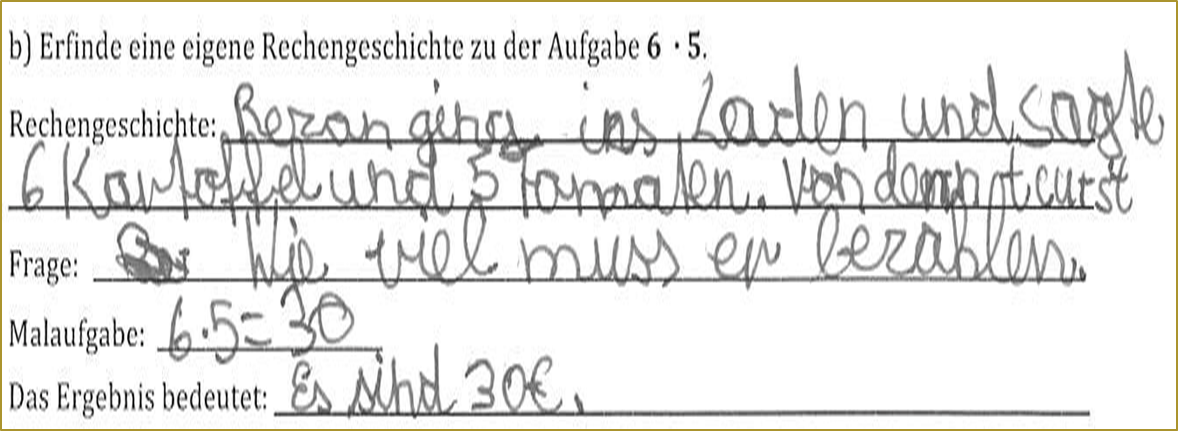 b) Erfinde eine eigene Rechengeschichte zu der Aufgabe 6 · 5.
Rechengeschichte: Rezan ging ins Laden und sagte
6 Kartoffel und 5 Tomaten. Von dem
Frage: Wie viel muss er bezahlen.
Malaufgabe: 6·5=30
Das Ergebnis bedeutet: Es sind 30€.